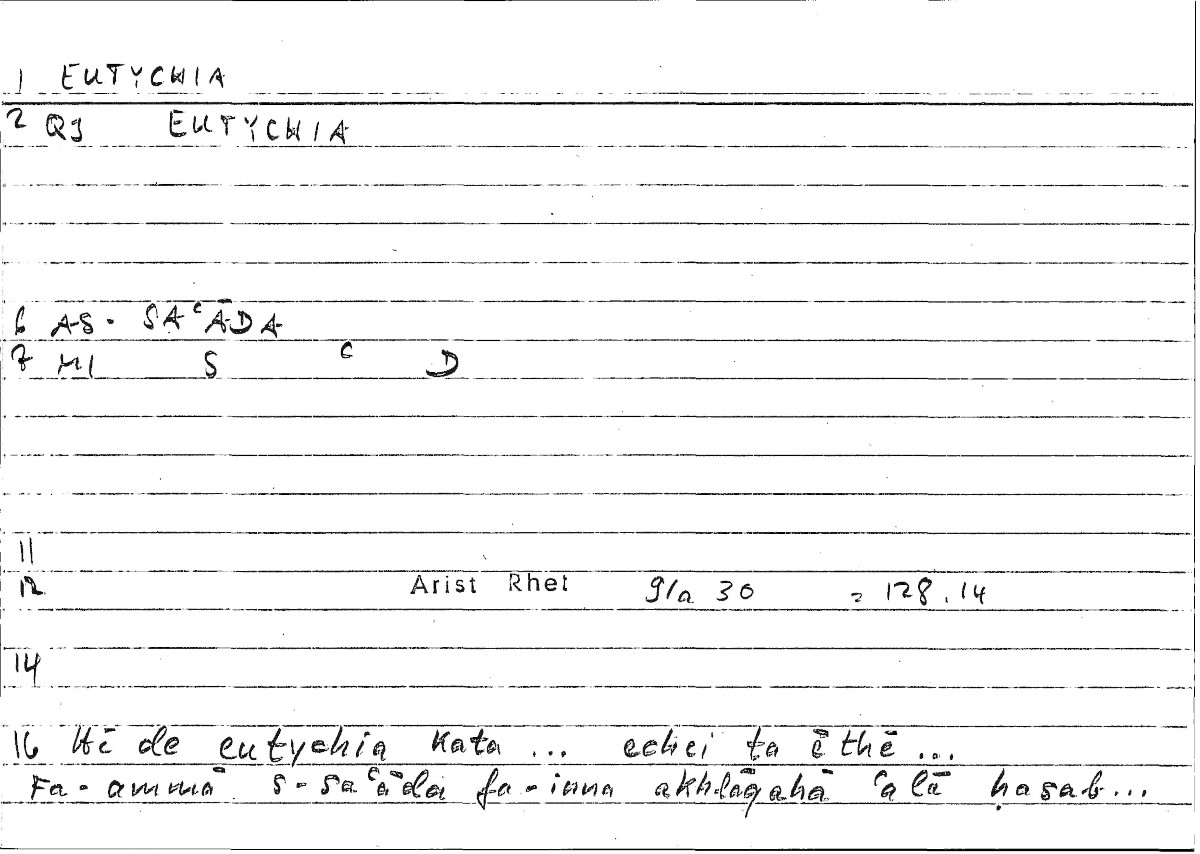 1 EUTYCHIA
2 QJ EUTYCHIA
6 AS- SAʿĀDA
7 MI S ʿ D
11
12 Arist Rhet 91a 30 = 128.14
14
16 Hē de eutychia kata ... echei ta ēthē ...
Fa-ammā s-saʿāda fa-inna akhlāqahā ʿalā ḥasab...